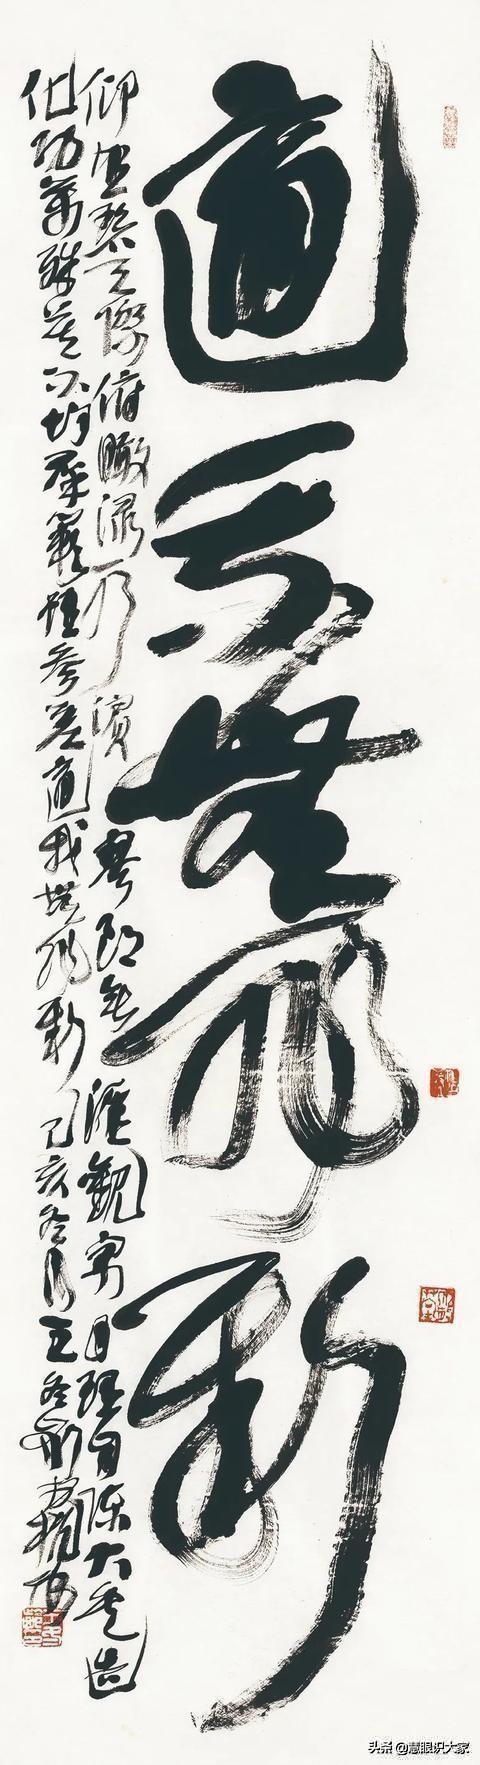 適我無非新
仰望碧天際俯瞰淥水濱寥朗無涯觀寓目理自陳大矣造
化功萬殊莫不均羣籟雖參差適我無非新己亥冬月王冬齡書
头条 @慧眼识大家